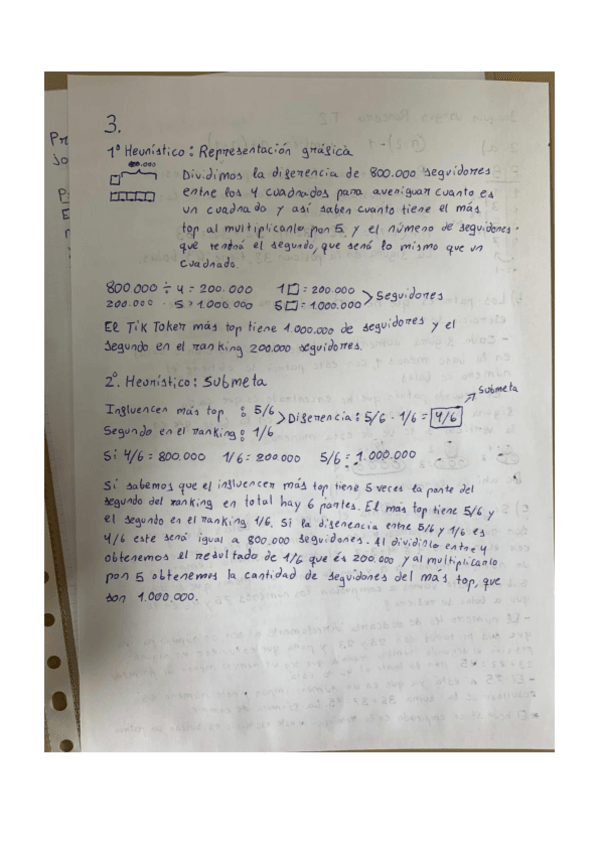 3.
1º Heurístico: Representación gráfica
800.000
Dividimos la diferencia de 800.000 seguidores
entre los 4 cuadrados para averiguar cuanto es
un cuadrado y así saber cuanto tiene el más
top al multiplicarlo por 5 y el número de seguidores
que tendrá el segundo, que será lo mismo que un
cuadrado.
800.000 ÷ 4 = 200.000 1□ = 200.000
200.000 · 5 = 1.000.000 5□ = 1.000.000 > Seguidores
El Tik Toker más top tiene 1.000.000 de seguidores y el
segundo en el ranking 200.000 seguidores.
2º. Heurístico: Submeta
Submeta
Influencer más top : 5/6
Segundo en el ranking: 1/6 > Diferencia: 5/6 · 1/6 = 4/6
Si 4/6 = 800.000 1/6 = 200.000 5/6 = 1.000.000
Si sabemos que el influencer más top tiene 5 veces la parte del
segundo del ranking en total hay 6 partes. El más top tiene 5/6 y
el segundo en el ranking 1/6. Si la diferencia entre 5/6 y 1/6 es
4/6 este será igual a 800.000 seguidores. Al dividirlo entre 4
obtenemos el resultado de 1/6 que és 200.000 y al multiplicarlo
por 5 obtenemos la cantidad de seguidores del más top, que
son 1.000.000.